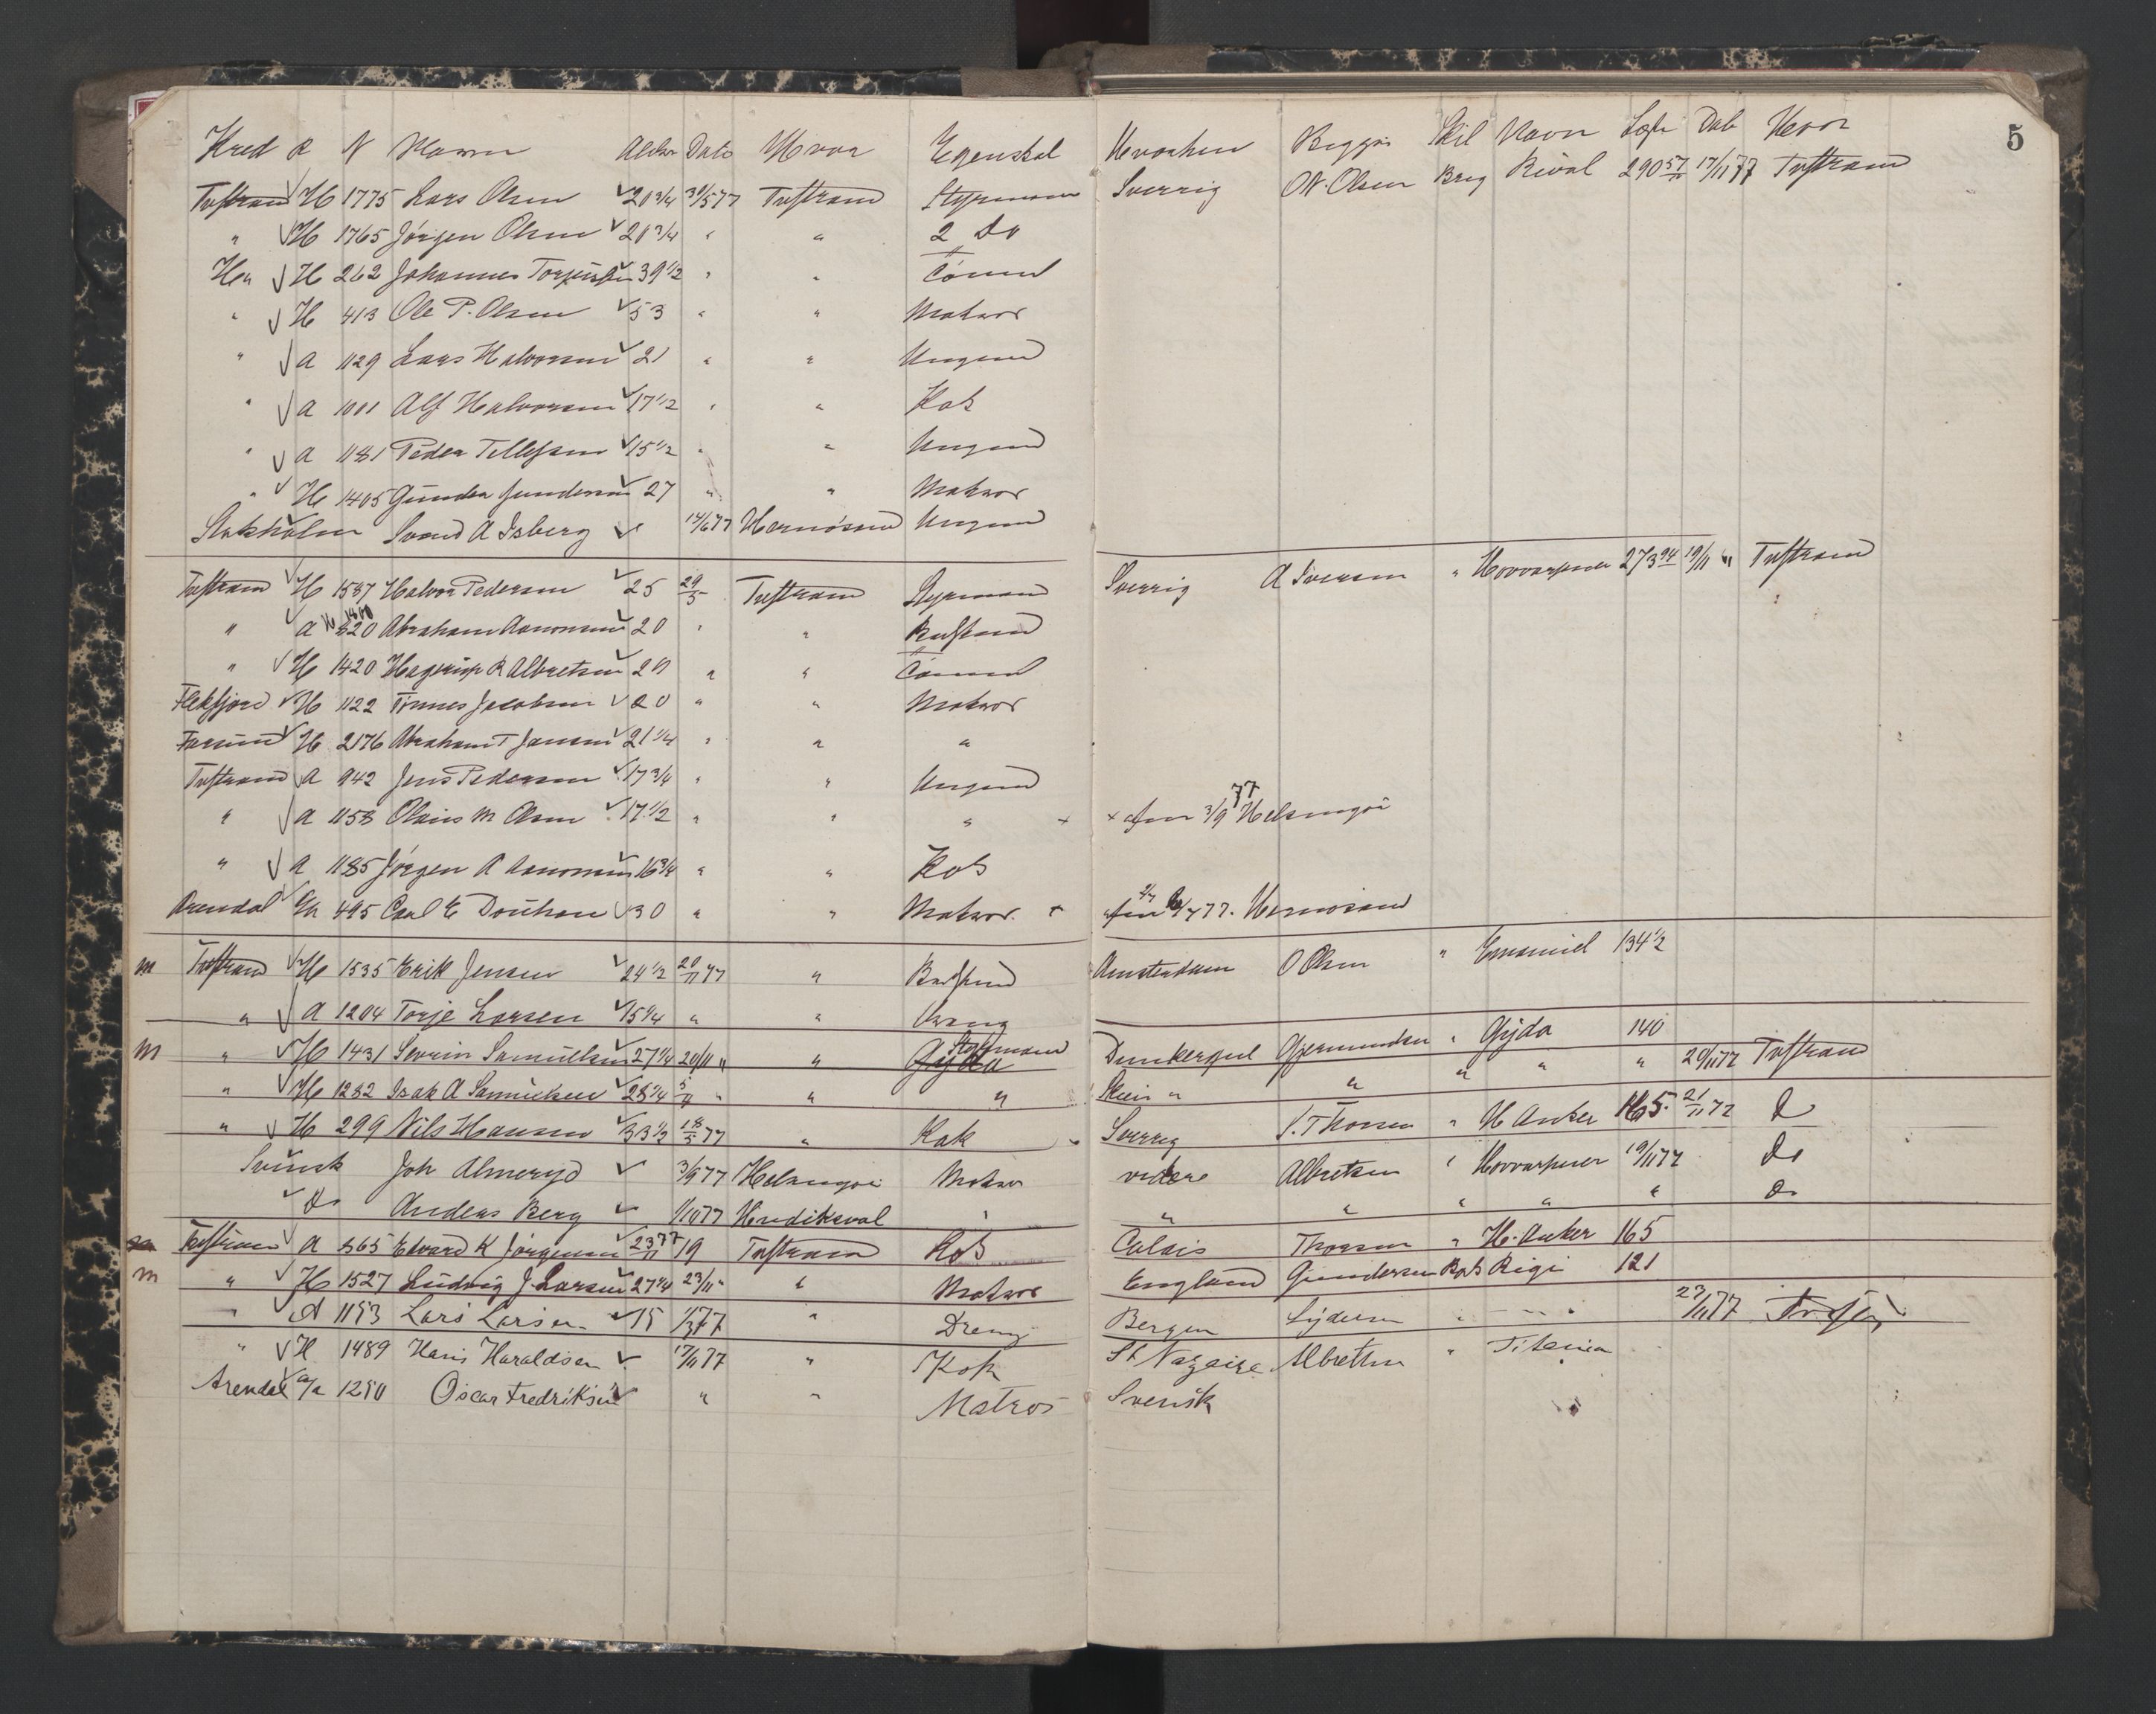 5
Kred R N Navn Alder Dato Hvor Egenskab Hvorhen Bygges Skil Navn Læst Dato Hvor
Tvstrand H 1775 Lars Olsen 20 3/4 30/5 77 Tvstrand Styrmand Sverrig O.N. Olsen Brig Rival 290 57 17/11 77 Tvstrand
" H 1765 Jörgen Olsen 20 3/4 " " 2 Do
H 262 Johannes 39 1/2 " " Tömd
" H 413 Ole P. Olsen 53 " " Matros
" A 1129 Lars Halvorsen 21 " " Ungmd
" A 1001 Alf Halvorsen 17 1/2 " " Kok
" A 1181 Peder Tellefsen 15 1/2 " " Ungmd
" H 1405 Gunder Gundersen 27 " " Matros
Stokholm Svend A Isberg 14/6 77 Hernösand Ungmd
Tvstrand H 1587 Halvor Pedersen 25 29/5 Tvstrand Styrmand Sverrig A Iversen " 273 94 19/11 " Tvstrand
" A 820 H 1860 Abraham Aanonsen 20 " "
" H 1420 R Albretsen 20 " " Tömd
Flekfjord H 1122 Tönnes Jacobsen 20 " " Matros
Farsund H 2176 Abraham T Jansen 21 1/4 " " "
Tvstrand A 942 Jens Pedersen 17 3/4 " " Ungmd
" A 1158 Olaus M Olsen 17 1/2 " " " + × afm 3/9 77 Helsingör
" A 1185 Jörgen A Aanonsen 16 3/4 " " Kok
Arendal 495 Carl E 30 " " Matros + afm 2/7 77. Hernösand
m Tvstrand H 1535 Erik Jensen 24 1/2 20/11 77 " Amsterdam O Olsen " Emanuel 134 1/2
" A 1204 Torje Larsen 15 1/4 " "
m " H 1431 Severin Samuelsen 27 1/4 20/11 " " Gyda Styrmand Dunkerque Gjermundsen " Gyda 140
" H 1282 Isak A Samuelsen 28 1/4 5/11 " " " Skien " " " " " " 20/11 77 Tvstrand
" H 299 Nils Hansen 33 1/2 18/5 77 " Kok Sverrig P. Thorsen " H Anker 165 21/11 77 Do
Svensk Joh Almeryd 3/9 77 Helsingör Matros videre Albretsen " 19/11 77 Do
Do Anders Berg 1/10 77 Hudiksval " " " " " " Do
m Tvstrand A 865 Edvard K Jörgensen 23/11 77 19 Tvstrand Kok Calais Thorsen " H. Anker 165
m " H 1527 Ludvig J. Larsen 27 3/4 23/11 " " Matros England Gundersen Bark Rigi 121
" A 1193 Lars Larsen 15 1/3 77 " Dreng Bergen " " " 23/11 77
" H 1489 Hans Haraldsen 17/11 77 " Kok St Nazaire Albretsen " Titania
Arendal a/a 1290 Oscar Fredriksen " " Matros Svensk